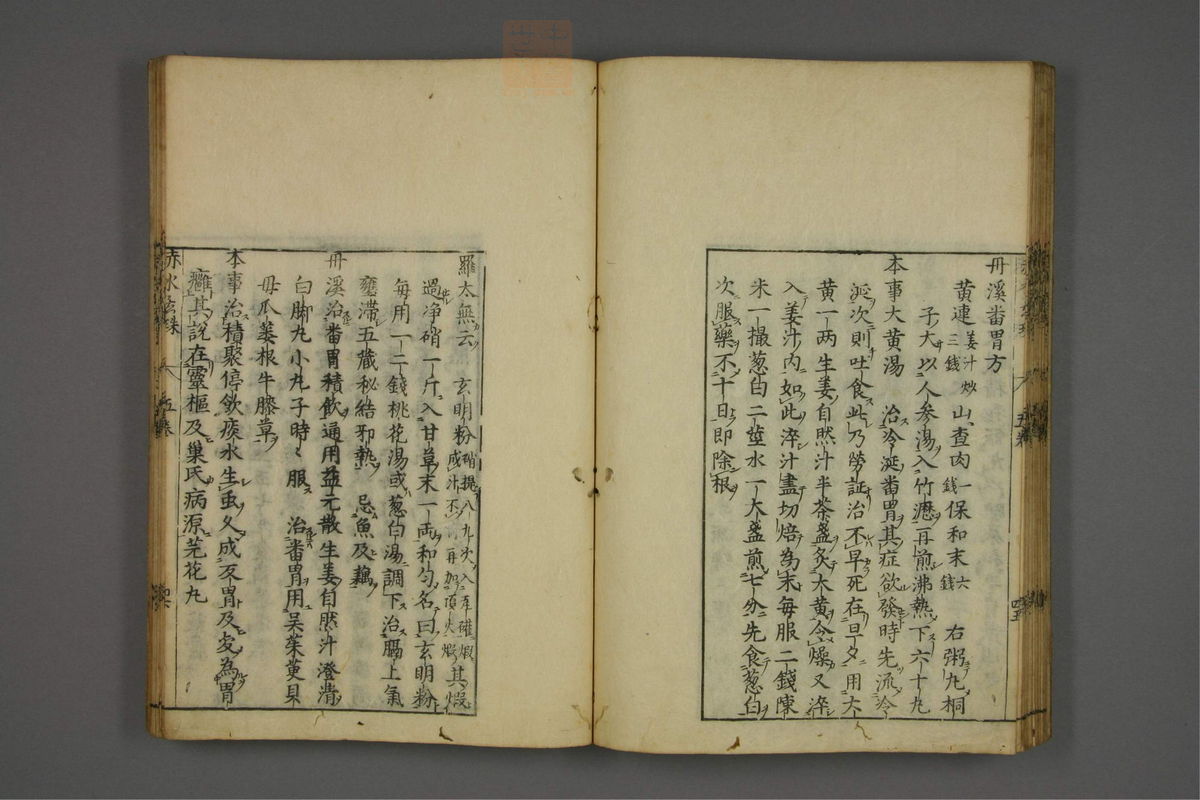 丹溪畨胃方
黄連姜汁炒三錢山査肉一錢保和末六錢右粥丸桐
子大以人參湯入竹瀝再煎沸熱下六十丸
本事大黄湯治冷涎畨胃其症欲發時先流冷
涎次則吐食此乃勞証治不早死在旦夕用大
黄一两生姜自然汁半茶盞炙大黄令燥又淬
入姜汁内如此淬汁盡切焙為末每服二錢陳
米一撮葱白二莖水一大盞煎七分先食葱白
次服藥不十日即除根
五卷
四五
羅太無云玄明粉硝提八九次入在礶煅其煆
過净硝一斤入甘草末一両和匀名曰玄明粉
每用一二錢桃花湯或葱白湯調下治膈上氣
壅滞五藏秘結邪熱忌魚及藕
丹溪治畨胃積飲通用益元散生姜自然汁澄清
白脚丸小丸子時時服治畨胃用吴茱萸貝
母瓜蔞根牛膝草
本事治積聚停飲痰水生虫久成反胃及変為胃
癰其説在靈樞及巢氏病源芫花丸
赤水玄珠
五卷